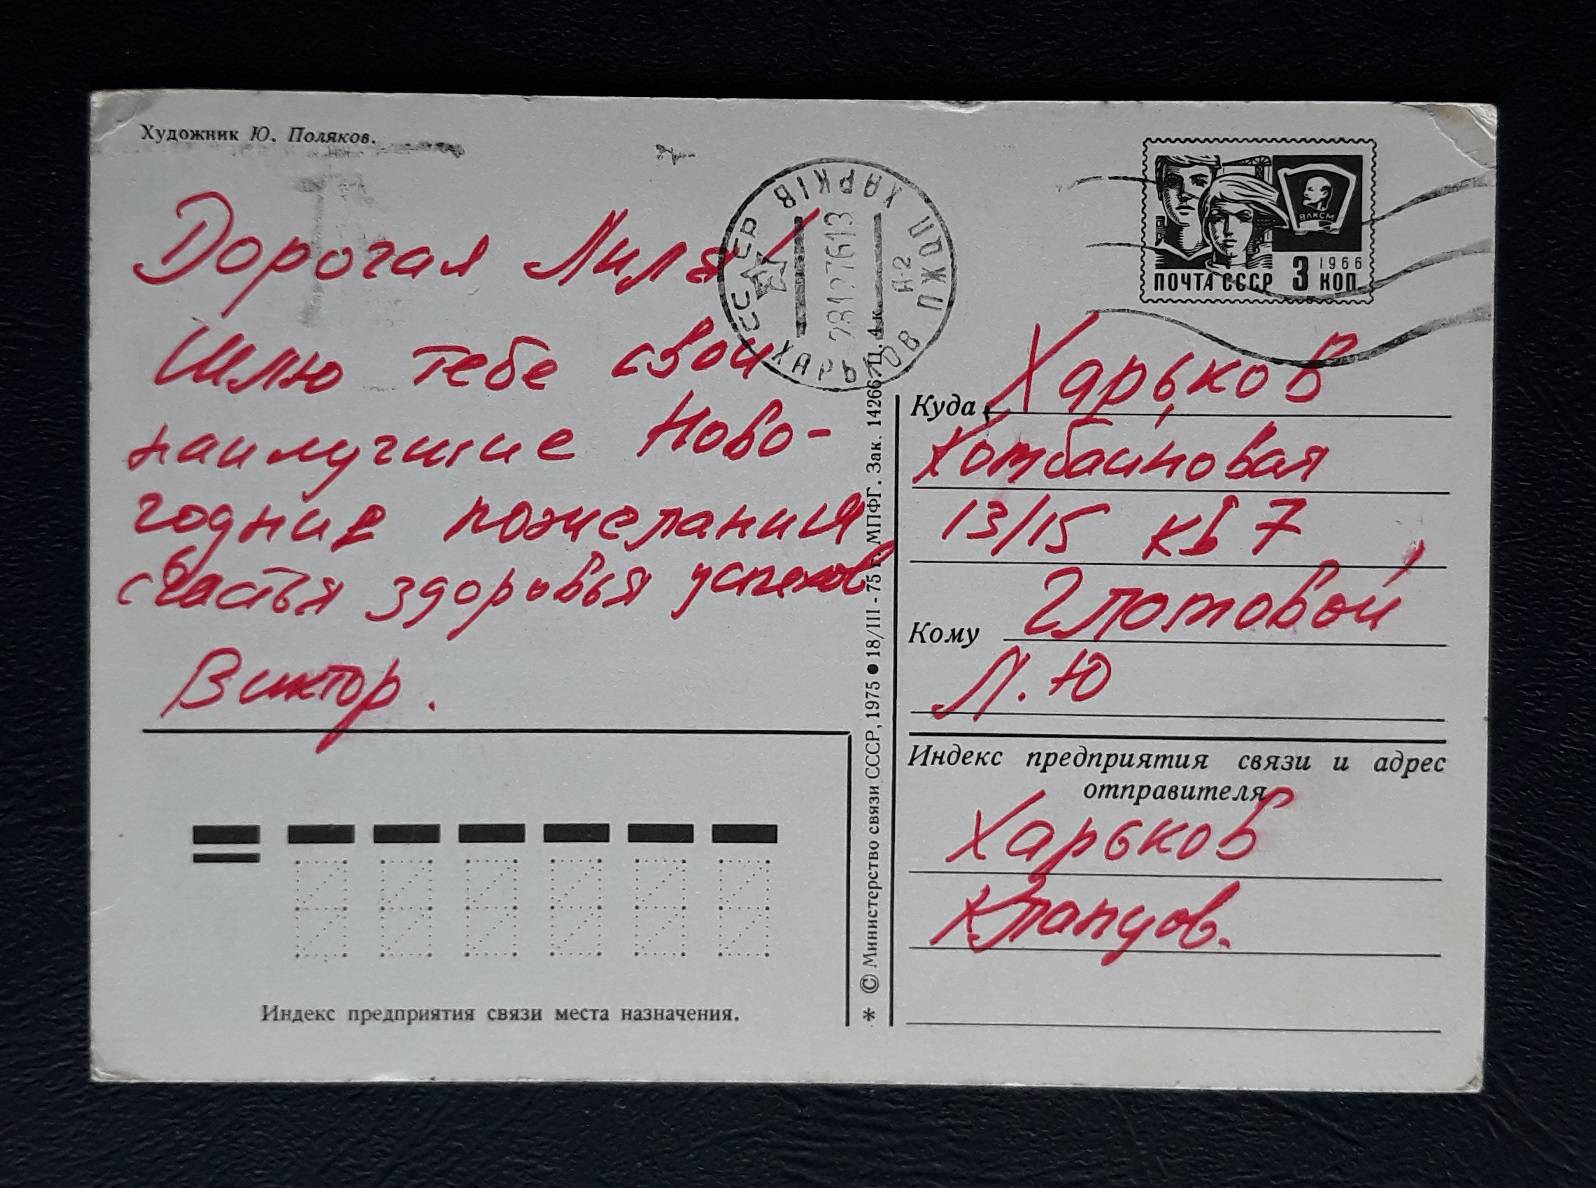 Художник Ю. Поляков.
Дорогая Лиля!
Шлю тебе свои
наилучшие Ново-
годние пожелания
счастья здоровья успехов
Виктор.
Индекс предприятия связи места назначения.
СССР ХАРКІВ ПЖДП
28127613
А-2
ХАРЬКОВ
ВЛКСМ
1966
ПОЧТА СССР 3 КОП.
* © Министерство связи СССР, 1975 ● 18/III - 75 г. МПФГ. Зак. 14266. Ц. 4 к.
Куда Харьков
Комбайновая
13/15 кв 7
Кому Глотовой
Л. Ю
Индекс предприятия связи и адрес
отправителя
Харьков
Клапцов.